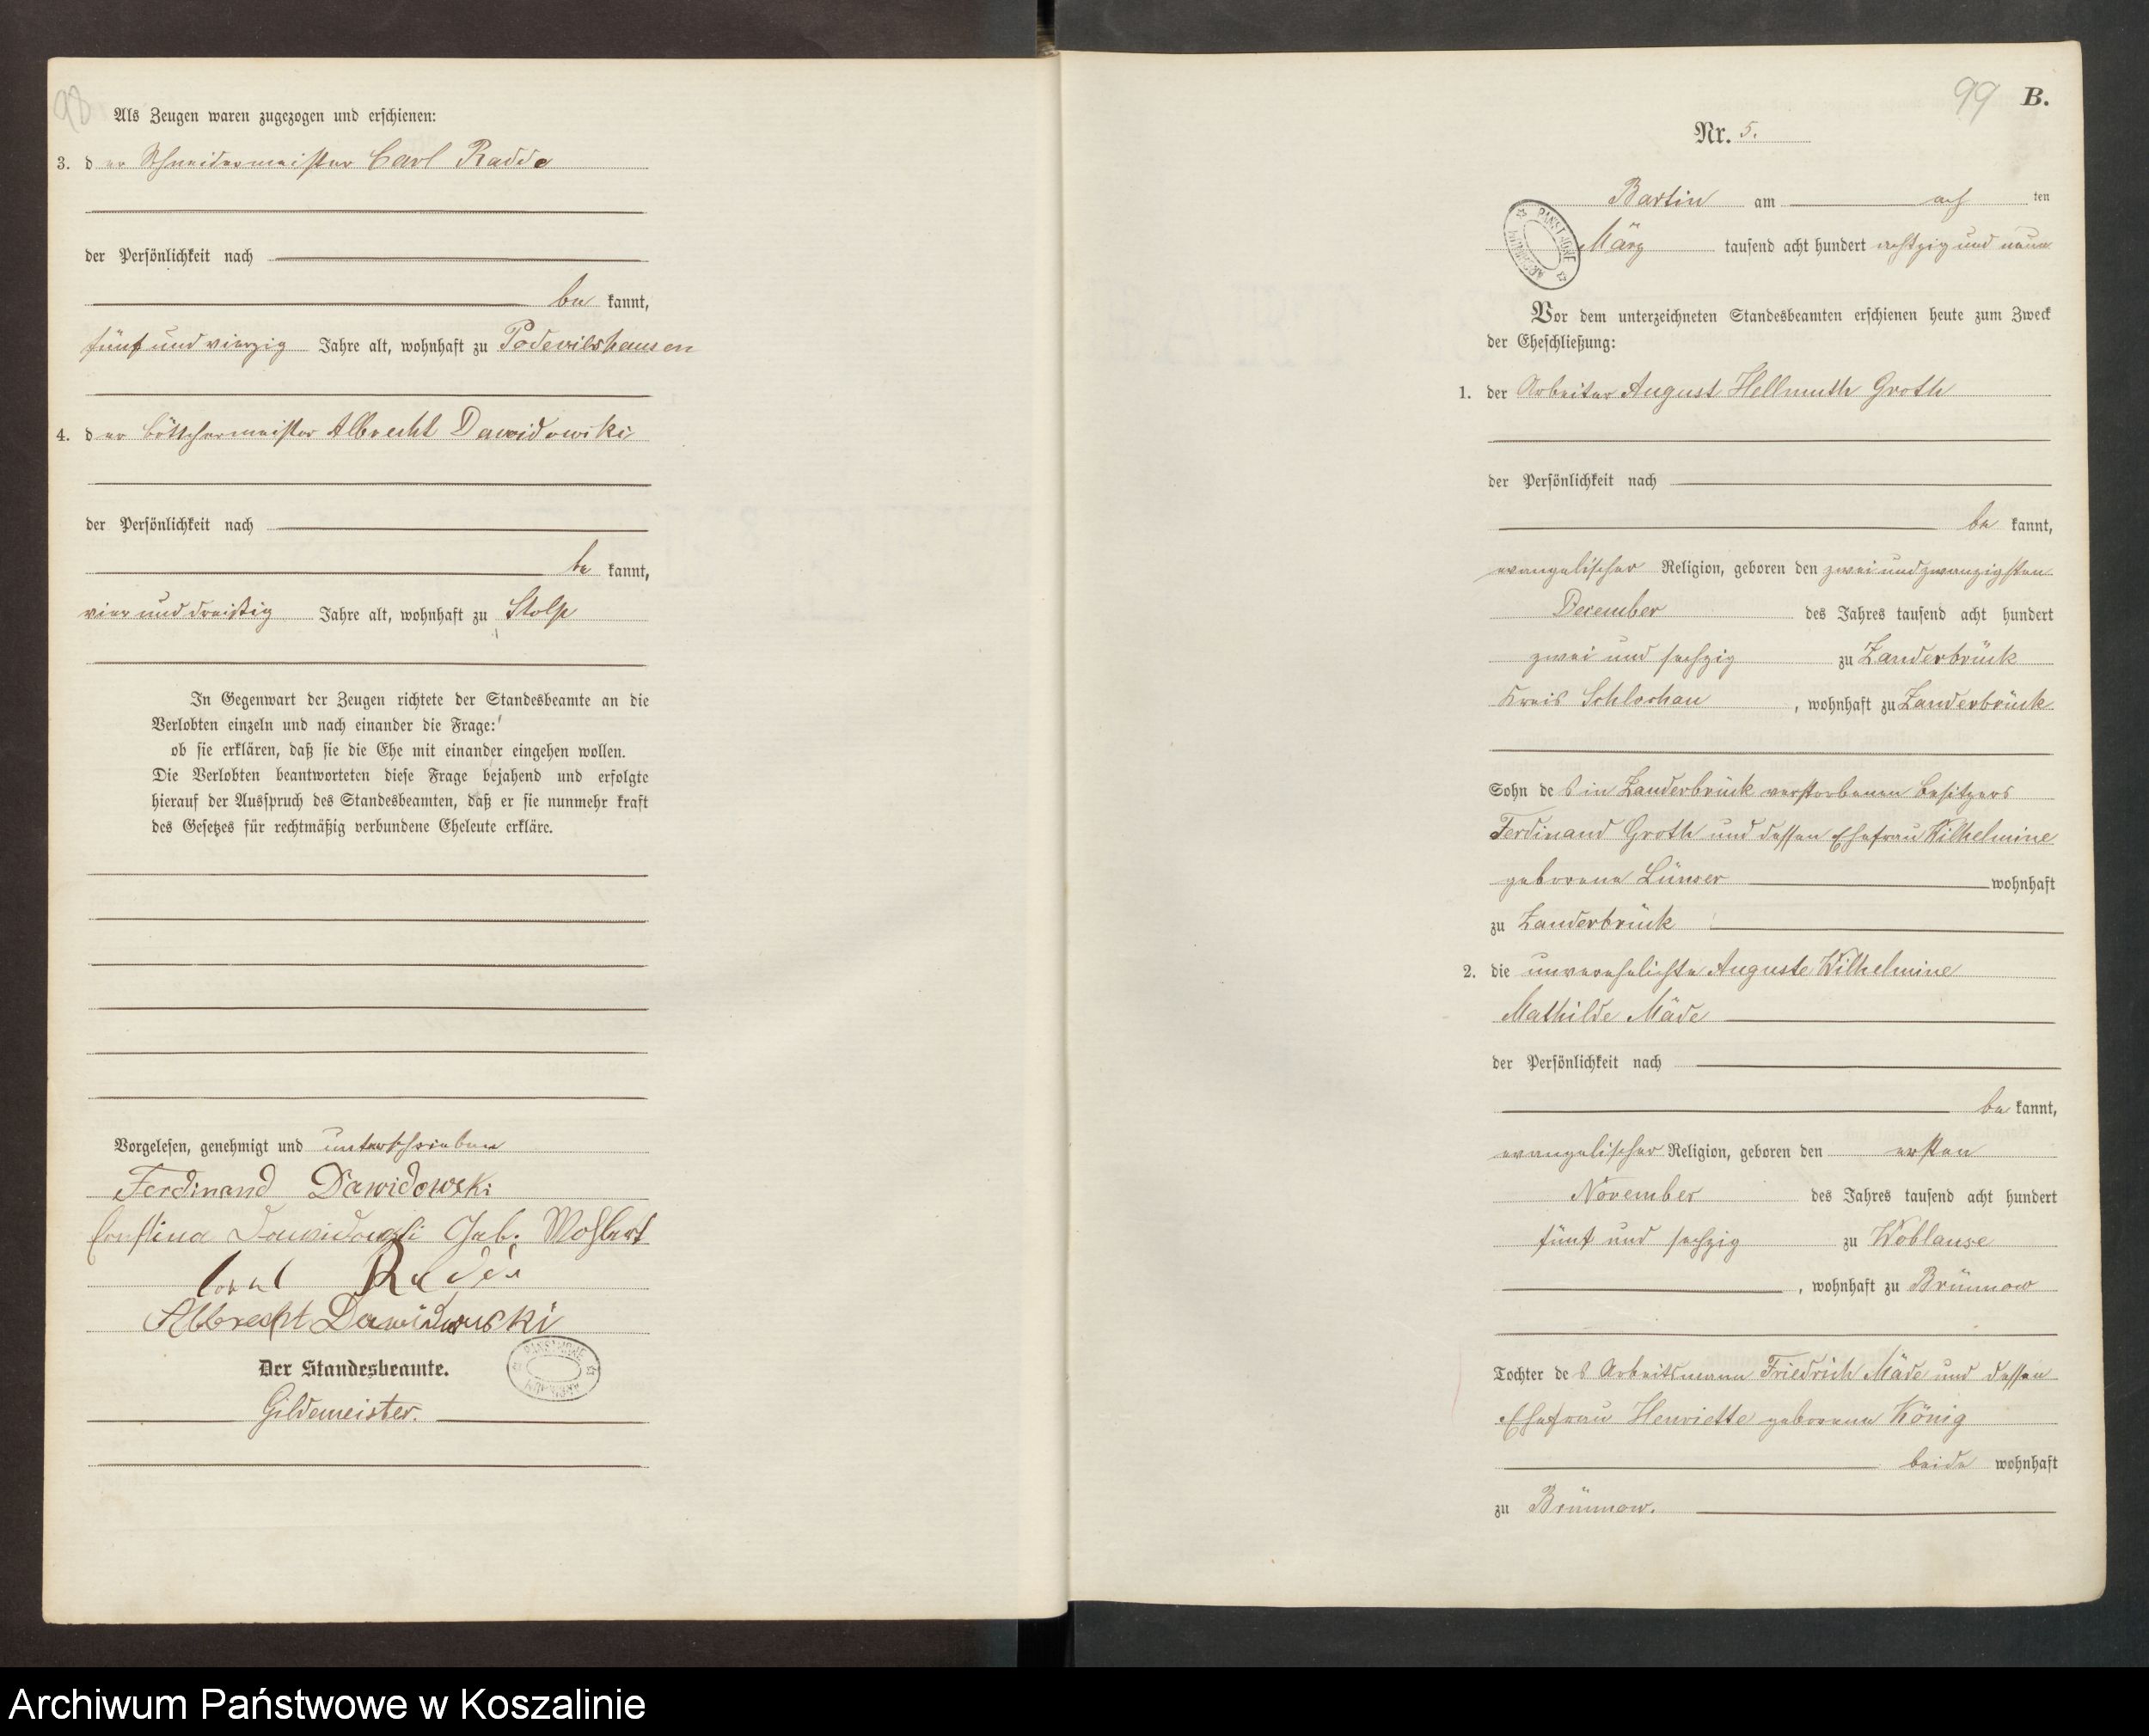 98
Als Zeugen waren zugezogen und erschienen:
3. der Schneidermeister Carl Radde
der Persönlichkeit nach
be kannt,
fünf und vierzig Jahre alt, wohnhaft zu Podewilshausen
4. der Böttchermeister Albrecht Dawidowski
der Persönlichkeit nach
be kannt,
vier und dreißig Jahre alt, wohnhaft zu Stolp
In Gegenwart der Zeugen richtete der Standesbeamte an die
Verlobten einzeln und nach einander die Frage:
ob sie erklären, daß sie die Ehe mit einander eingehen wollen.
Die Verlobten beantworteten diese Frage bejahend und erfolgte
hierauf der Ausspruch des Standesbeamten, daß er sie nunmehr kraft
des Gesetzes für rechtmäßig verbundene Eheleute erkläre.
Vorgelesen, genehmigt und unterschrieben
Ferdinand Dawidowski
Dawidowski Geb.
Radde
Albrecht Dawidowski
Der Standesbeamte.
Gildemeister.
99 B.
Nr. 5.
Bartin am ach ten
März tausend acht hundert achtzig und neun
Vor dem unterzeichneten Standesbeamten erschienen heute zum Zweck
der Eheschließung:
1. der Arbeiter August Hellmuth Groth
der Persönlichkeit nach
be kannt,
evangelischer Religion, geboren den zwei und zwanzigsten
December des Jahres tausend acht hundert
zwei und sechzig zu Zanderbrück
Kreis Schlochau, wohnhaft zu Zanderbrück
Sohn des in Zanderbrück verstorbenen Besitzers
Ferdinand Groth und dessen Ehefrau Wilhelmine
geborene Lünser wohnhaft
zu Zanderbrück
2. die unverehelichte Auguste Wilhelmine
Mathilde Mäde
der Persönlichkeit nach
be kannt,
evangelischer Religion, geboren den ersten
November des Jahres tausend acht hundert
fünf und sechzig zu Woblanse
, wohnhaft zu Brünnow
Tochter des Arbeitsmann Friedrich Mäde und dessen
Ehefrau Henriette geborene König
beide wohnhaft
zu Brünnow.
Archiwum Państwowe w Koszalinie